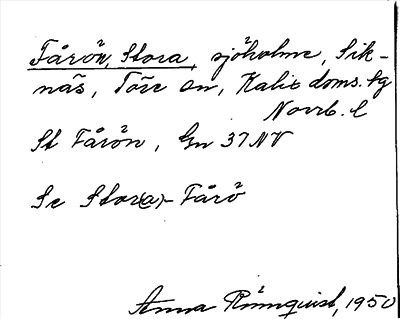 Fårön, Stora, sjöholme, Sik-
näs, Töre sn, Kalix doms. sg
Norrb. l
St Fårön, Gn 37 NV
Se Stor(a)-Fårö
Anna Rönnquist, 1950